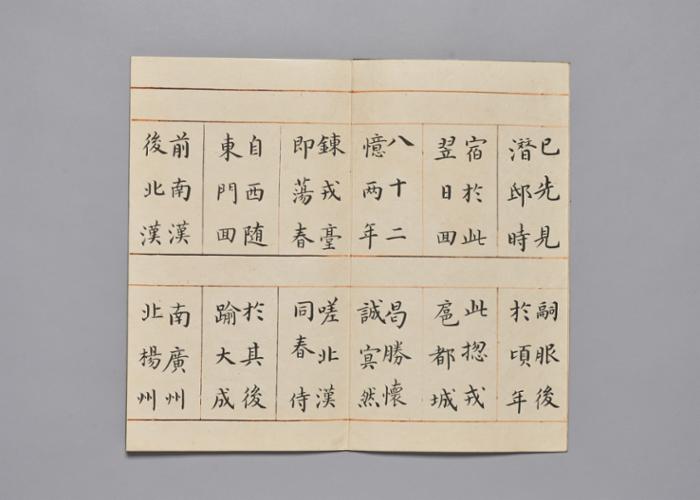 已先見
潛邸時
嗣服後
於頃年
宿於此
翌日回
此摠戎
扈都城
八十二
憶两年
曷勝懷
誠冥然
鍊戎臺
即蕩春
嗟北漢
同春侍
自西随
東門回
於其後
踰大成
前南漢
後北漢
南廣州
北楊州